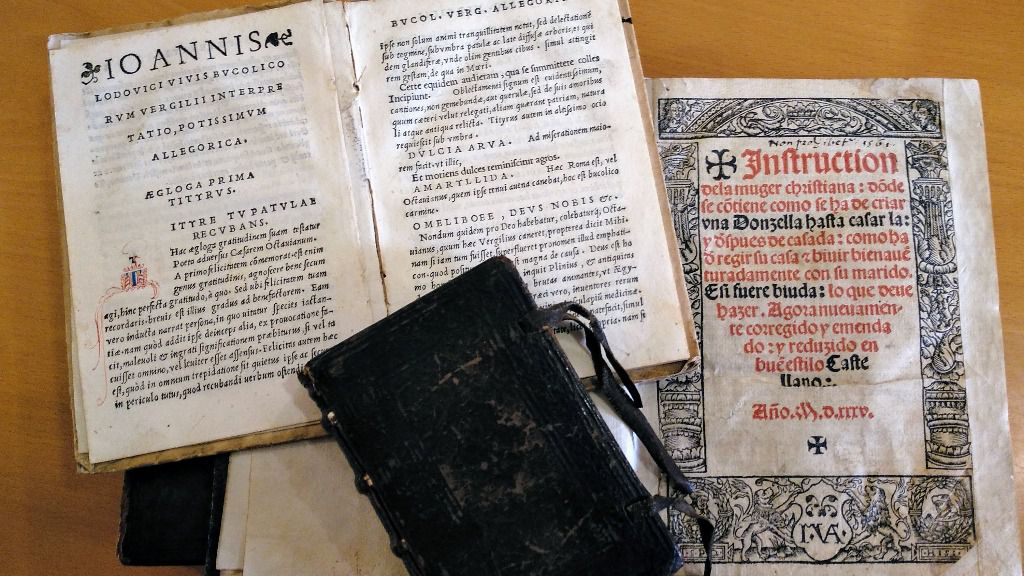 IOANNIS
LODOVICI VIVIS BVCOLICO
RVM VERGILII INTERPRE
TATIO, POTISSIMVM
ALLEGORICA.
ÆGLOGA PRIMA
TITYRVS.
ITYRE TV PATVLAE
RECVBANS.
Hæc ægloga gratitudinem suam testatur
Poeta aduersus Cæsarem Octauianum.
A primo felicitatem cõmemorat: est enim
genus gratitudinis, agnoscere bene secum
agi, hinc perfecta gratitudo, à quo. Sed ubi felicitatem tuam
recordaris: breuis est illius gradus ad benefactorem. Eam
vero inducta narrat persona, in quo uitatur species iactan-
tiæ: nam quod addit ipse deinceps alia, ex prouocatione fa-
cit, maleuoli & ingrati significationem præbiturus si vel ta
cuisset omnino, vel leuiter esset assensus. Felicitatis autem hæc
est, quòd in omnium trepidatione sit quietus ipse ac
in periculo tutus, quod recubandi verbum
BVCOL. VERG. ALLEGORI
ipse non solum animi tranquillitatem notat, sed delectationẽ
sub tegmine, sub vmbra patulæ ac late diffusæ arboris, ea qui
dem glandiferæ, vnde olim gentibus cibus. simul attingit
rem gestam, de qua in Mœri.
Certe equidem audieram, qua se summittere colles
Incipiunt. Oblectamenti signum est euidentissimum,
cantiones, non gemebundæ, aut querulæ, sed de suis amoribus
quum cæteri velut relegati, aliam quærant patriam, natura
li atque antiqua relicta. Tityrus autem in altissimo ocio
requiescit sub vmbra.
DVLCIA ARVA. Ad miserationem maio-
rem facit, vt illic,
Et moriens dulces reminiscitur agros.
AMARYLLIDA. Hæc Roma est, vel
Octauianus, quem ipse tenui auena canebat, hoc est bucolico
carmine.
O MELIBOEE, DEVS NOBIS &c.
Nondum quidem pro Deo habebatur, colebaturq; Octa-
uianus, quum hæc Vergilius caneret, propterea dicit Mihi.
nam si iam tum fuisset superflueret pronomen illud emphati-
con quod magna de causa. Deus est ho
inquit Plinius, & antiquitus
brutas animantes, vt Ægy-
vero, inuentores rerum
medicina.
Instruction
dela muger christiana: dõde
se cõtiene como se ha de criar
vna Donzella hasta casar la:
y dspues de casada: como ha
d regir su casa z biuir bienauẽ
turadamente con su marido.
E si fuere biuda: lo que deue
hazer. Agora nueuamẽn-
te corregido y emenda
do: y reduzido en
buẽ estilo Caste
llano.
Año. M.D.xxxv.